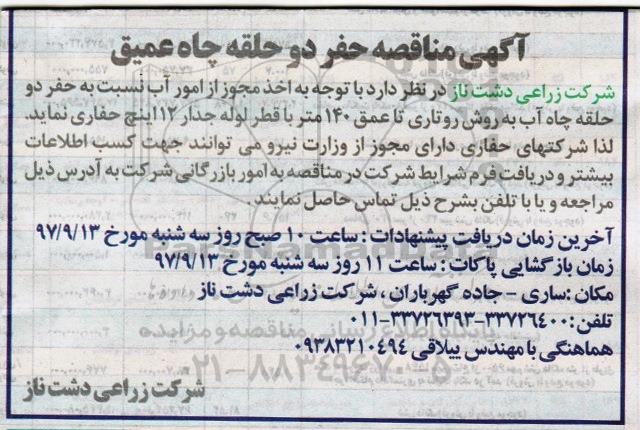 آگهی مناقصه حفر دو حلقه چاه عمیق
شرکت زراعی دشت ناز در نظر دارد با توجه به اخذ مجوز از امور آب نسبت به حفر دو
حلقه چاه آب به روش روتاری تا عمق ۱۴۰ متر با قطر لوله جدار ۱۲ اینچ حفاری نماید.
لذا شرکتهای حفاری دارای مجوز از وزارت نیرو می توانند جهت کسب اطلاعات
بیشتر و دریافت فرم شرایط شرکت در مناقصه به امور بازرگانی شرکت به آدرس ذیل
مراجعه و یا با تلفن بشرح ذیل تماس حاصل نمایند.
آخرین زمان دریافت پیشنهادات : ساعت ۱۰ صبح روز سه شنبه مورخ ۹۷/۹/۱۳
زمان بازگشایی پاکات : ساعت ۱۱ روز سه شنبه مورخ ۹۷/۹/۱۳
مکان :ساری - جاده گهرباران ، شرکت زراعی دشت ناز
تلفن: ۳۳۷۲۶۴۰۰-۳۳۷۲۶۳۹۳-۰۱۱
پایگاه اطلاع رسانی مناقصه و مزایده
هماهنگی با مهندس ییلاقی ۰۹۳۸۳۲۱۰۴۹۴
۰۲۱-۸۸۳۴۹۶۷۰-۵
شرکت زراعی دشت ناز